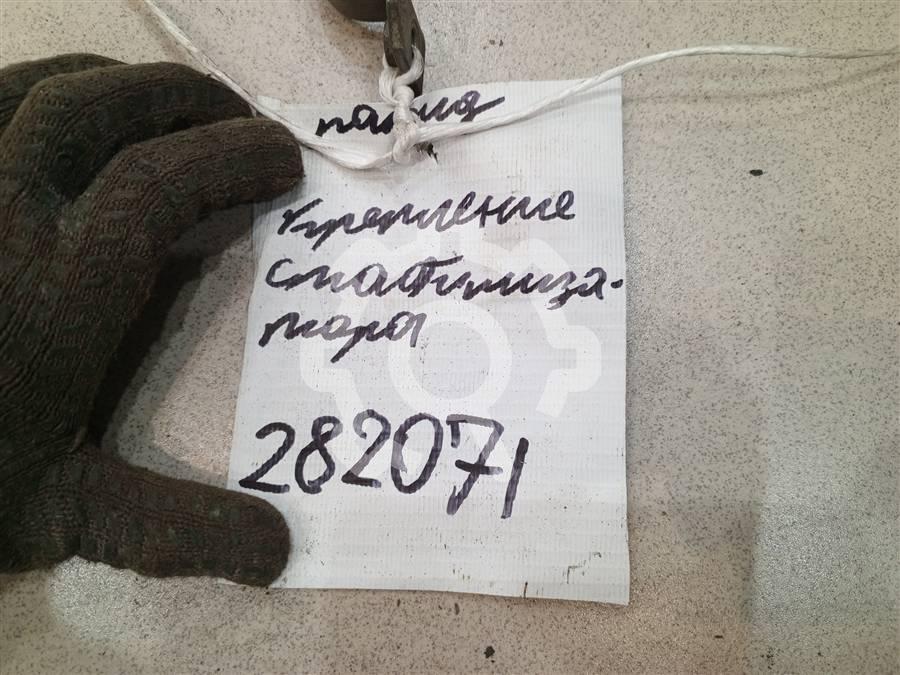 Крепление
стабилиза-
тора
282071